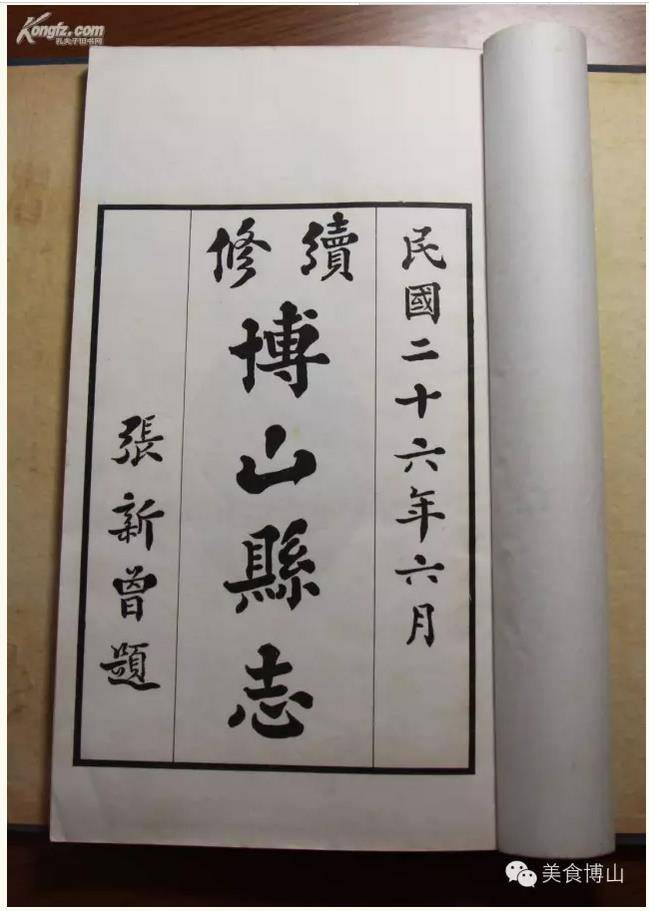 Kongfz.com
孔夫子旧书网
民國二十六年六月
續修
博山縣志
張新曾題
美食博山